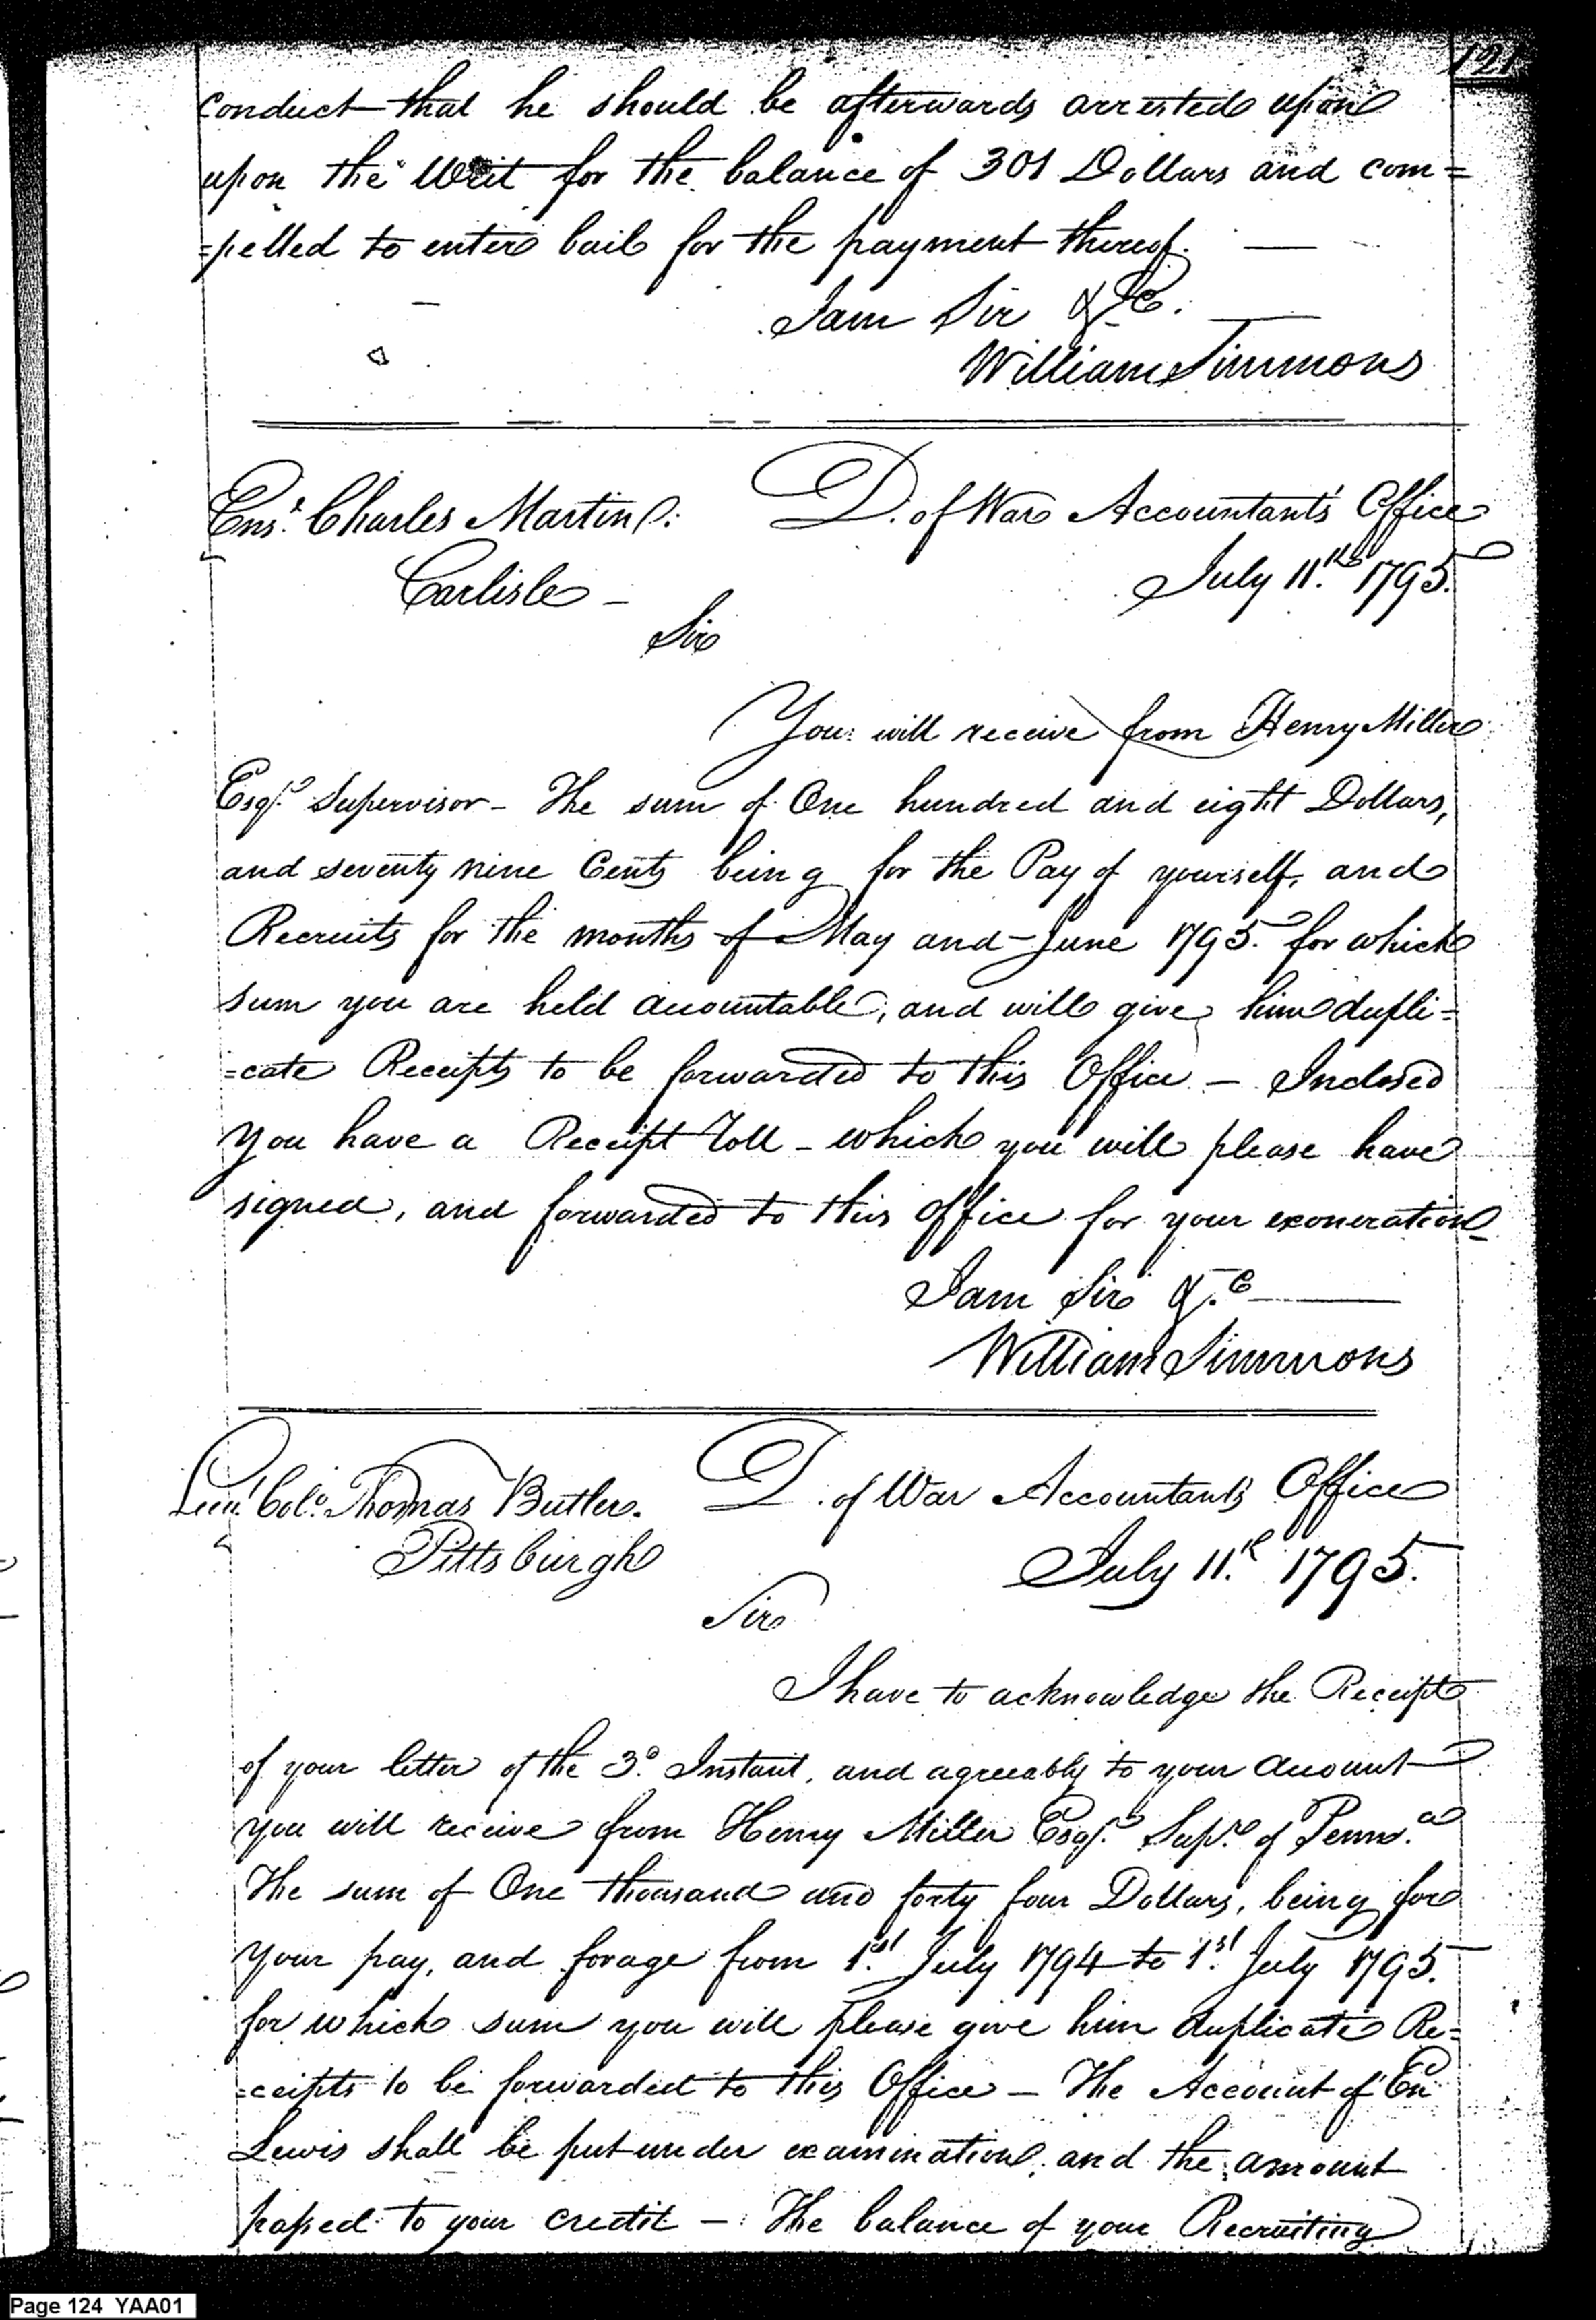 121
conduct that he should be afterwards arrested upon
upon the Writ for the balance of 301 Dollars and com=
=pelled to enter bail for the payment thereof.
I am Sir &c.
William Simmons
Ens. Charles Martin. D. of War Accountant's Office
Carlisle - July 11.th 1795.
Sir
You will receive from Henry Miller
Esqr. Supervisor - The sum of One hundred and eight Dollars,
and seventy nine Cents being for the Pay of yourself, and
Recruits for the months of May and June 1795. for which
sum you are held accountable, and will give him dupli=
=cate Receipts to be forwarded to this Office - Inclosed
you have a Receipt Roll - which you will please have
signed, and forwarded to this office for your exoneration
I am Sir &.c
William Simmons
Lieut. Colo. Thomas Butler. D. of War Accountants Office
Pittsburgh July 11.th 1795.
Sir
I have to acknowledge the Receipt
of your letter of the 3d. Instant, and agreeably to your Account
you will receive from Henry Miller Esqr. Supr. of Penns.a
The sum of One thousand and forty four Dollars, being for
your pay, and forage from 1st. July 1794 to 1st. July 1795.
for which sum you will please give him duplicate Re=
=ceipts to be forwarded to this Office - The Account of En
Lewis shall be put under examination, and the amount
passed to your credit - The balance of your Recruiting
Page 124 YAA01